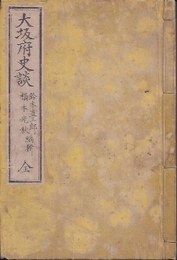 大坂府史談
鈴木直三郎
橋本光秋
編輯
全